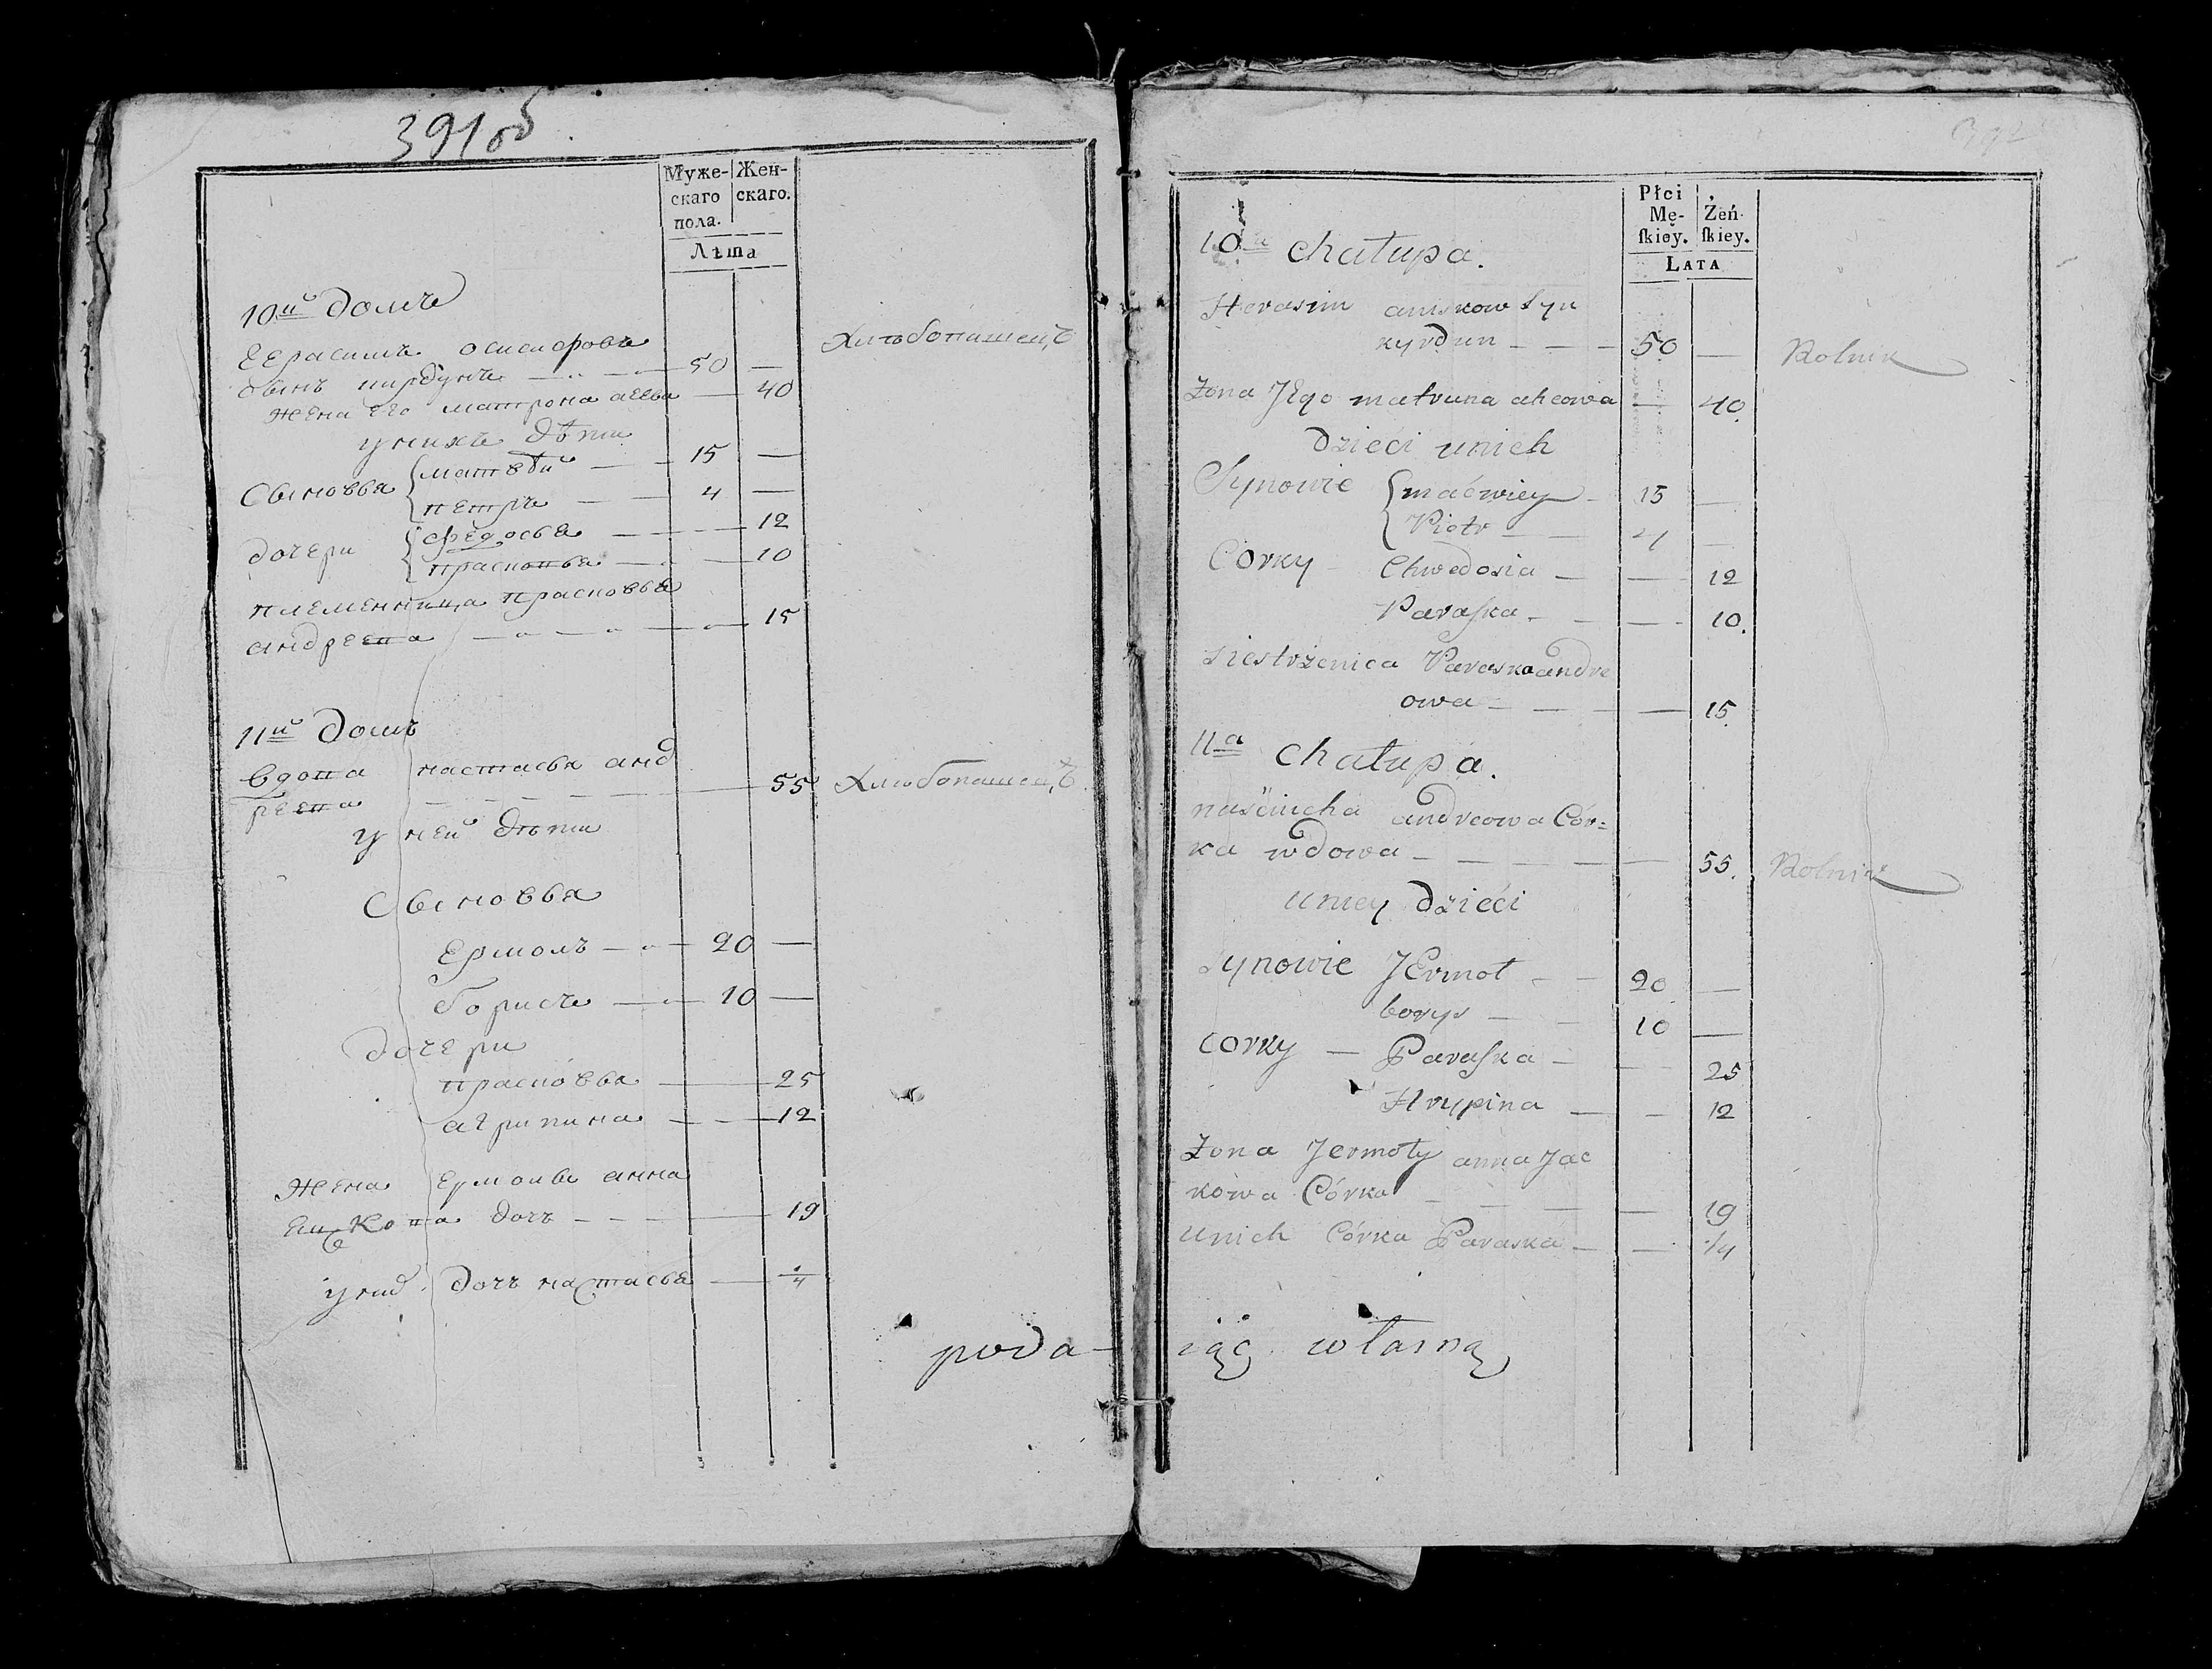 391об
Муже-
скаго
пола.
Жен-
скаго.
Лѣта
10й домъ
Герасимъ осипофовъ
сынъ кирдунъ — 50 —
Хлѣбопашецъ
жена Его матрона агеева — 40
у нихъ дѣти
Сыновья { матвѣй — 15 —
петръ — 4 —
дочери { федосья — 12
прасковья — 10
племенница прасковья
андреева — 15
11й домъ
вдова настасья анд
реева — 55 Хлѣбопашецъ
у ней дѣти
Сыновья
Ермолъ — 20 —
борисъ — 10 —
дочери
прасковья — 25
агрипина — 12
жена Ермолы анна
Яцкова дочь — 19
у них дочь настасья — 1/4
poda-
392
Płci
Mę-
ſkiey.
Żeń-
ſkiey.
LATA
10a chałupa.
Herasim aniskow Syn
kyrdun — 50 — Rolnik
Żona JEgo matruna aheowa — 40.
dzieci unich
Synowie { maćwiey — 15 —
Piotr — 4 —
Corky Chwedosia — 12
Paraſka — 10.
siestrzenica Paraska andre
owa — 15.
11a chałupa.
naściucha andreowa Cór=
ka wdowa — 55. Rolnik
uniey dzieci
Synowie JErmoł — 20 —
borys — 10 —
corky — Paraſka — 25
Hrypina — 12
Żona Jermoły anna Jac
kowa Córka — 19
unich Córka Paraska — 1/4
iąć własną